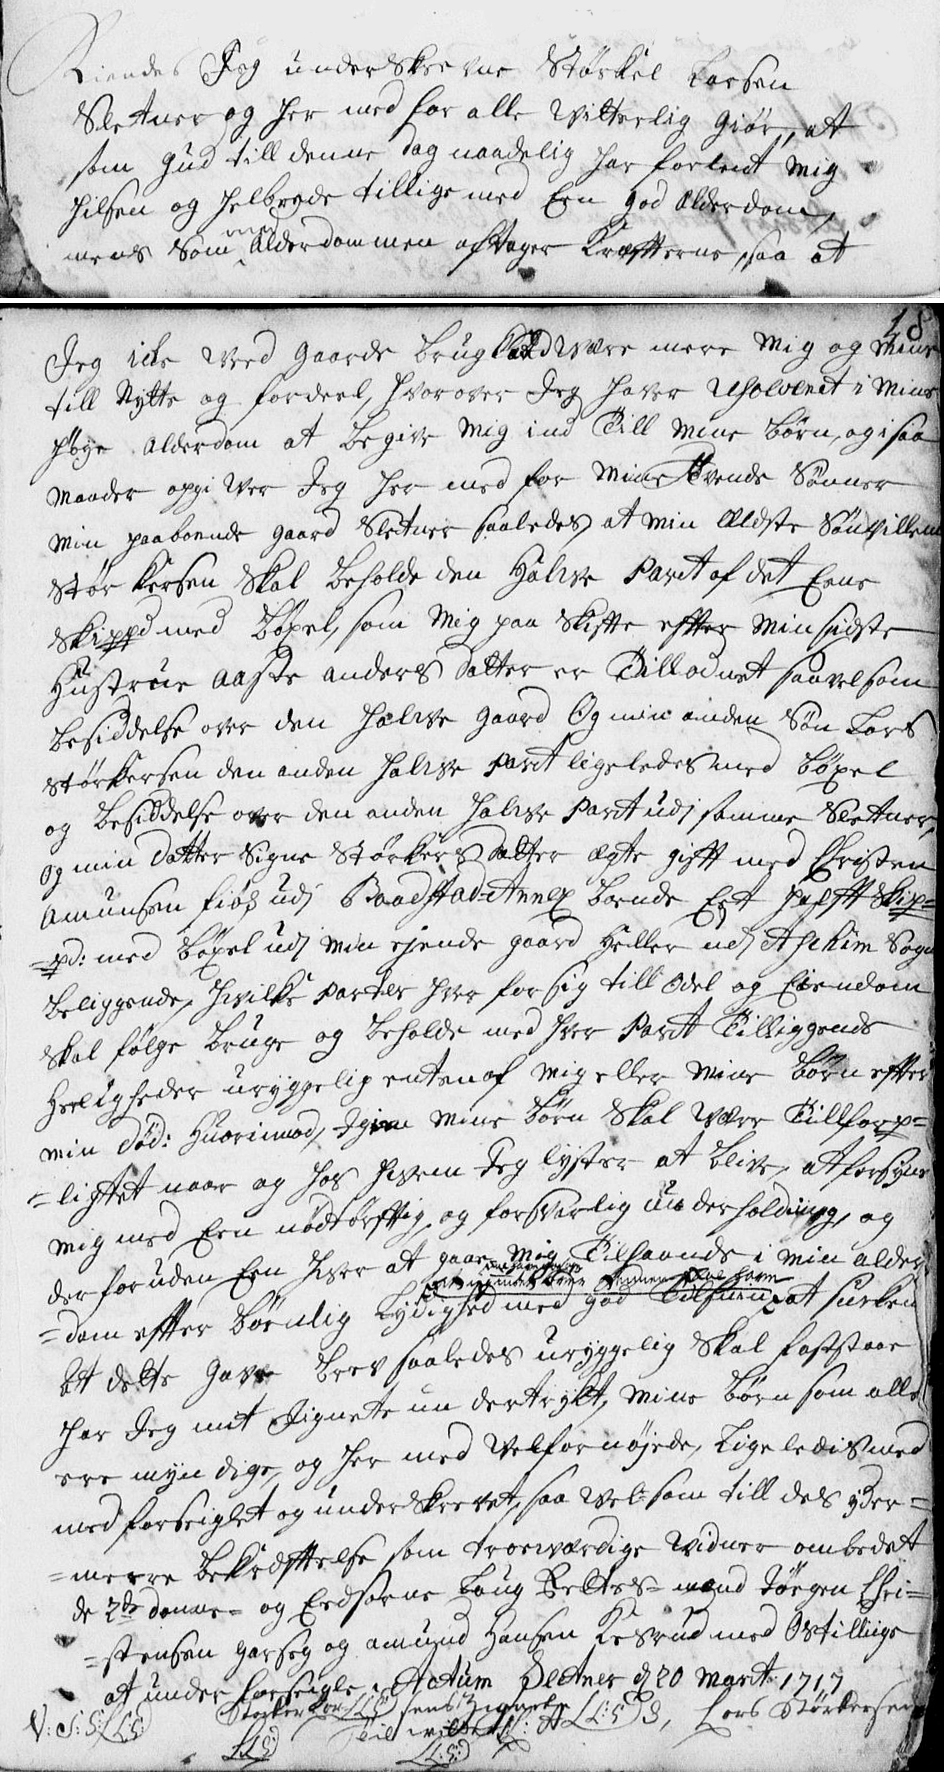 Kiendes Jeg underskrevne Størkel Larsen
Sletner og her med for alle Vitterlig Giør, at
som Gud till denne dag naadelig har forlent Mig
Hilsen og Helbrede tillige med Een god Alderdom,
mens Som med Alderdommen aftager Kræfterne, saa at
18
Jeg icke ved gaards brug kand være mere Mig og Mine
till Nytte og fordeel, hvorover Jeg haver resolveret i Mine
høye Alderdom at begive Mig ind Till Mine børn, og i saa
Maader opgiver Jeg her med for Mine Tvende Sønner
Min paaboende gaard Sletner saaledes, at Min Eldste Søn Villem
Størkersen Skal beholde den Halve Part af det Eene
Skippd med Bøxel, som Mig paa Skifte effter Min sidste
Hustrue Aaste Anders datter er Tillodnet saavelsom
besiddelse over den halve gaard Og min anden Søn Lars
Størkersen den anden halve Part ligeledes med bøxel
og besiddelse over den anden halve Part udj samme Sletner,
og min datter Signe Størkers datter ægte gift med Christen
Amunsen fiøs udj Baadstad Annex boende Eet halft Skip=
=pd: med bøxel udj Min ejende gaard Heller udj Aschim Sogn
beliggende, hvilke Parter hver for sig till Odel og Eiendom
Skal følge bruge og beholde med hver Part Tilliggende
Herligheder uryggelig enten af Mig eller Mine børn efter
min død: Huorimod, Igien Mine børn Skal være Tillforp=
=ligtet naar og hos hvem Jeg lyster at blive, at forsyne
Mig med Een nødtørfftig, og forsvarlig Underholdning, og
der foruden Een hver at gaae Mig Tilhaande i min alder
=dom effter børnlig Lydighed med god Tilsiun, at
at dette Gave Brev saaledes uryggelig Skal faststaae
har Jeg mit Signete undertrykt, Mine børn som alle
ere myndige, og her med Velfornøjede, Ligeledis med
med forseiglet og underskrevet, saa Vel som till des yder=
=meere bekræfftelse som troeværdige Vidner ombedet
de 2de danne= og Eedsorne Laug Rettes=mænd Jørgen Chri=
=stensen garseg og Amund Hansen Kesrud med Os tillige
at underforseigle, Actum Sletner d 20 Marti 1717
V: S: S: (L:S:) Størker Larsens Zignete (L:S:) Lars Størkersen
(L:S:) Til vitterl: (L:S:)